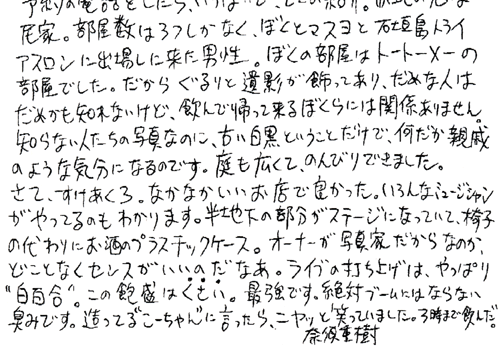 民家。部屋数は3つしかなく、ぼくとマスヨと石垣島トライ
アスロンに出場しに来た男性。ぼくの部屋はトートーメーの
部屋でした。だからぐるりと遺影が飾ってあり、だめな人は
だめかも知れないけど、飲んで帰って来るぼくらには関係ありません。
知らない人たちの写真なのに、古い白黒ということだけで、何だか親戚
のような気分になるのです。庭も広くて、のんびりできました。
さて、すけあくろ。なかなかいいお店で良かった。いろんなミュージシャン
がやってるのもわかります。半地下の部分がステージになっていて、椅子
の代わりにお酒のプラスチックケース。オーナーが写真家だからなのか、
どことなくセンスがいいのだなあ。ライブの打ち上げは、やっぱり
“白百合”。この泡盛はくどい。最強です。絶対ブームにはならない
臭みです。造ってるこーちゃんに言ったら、ニヤッと笑っていました。3時まで飲んだ。
奈須重樹